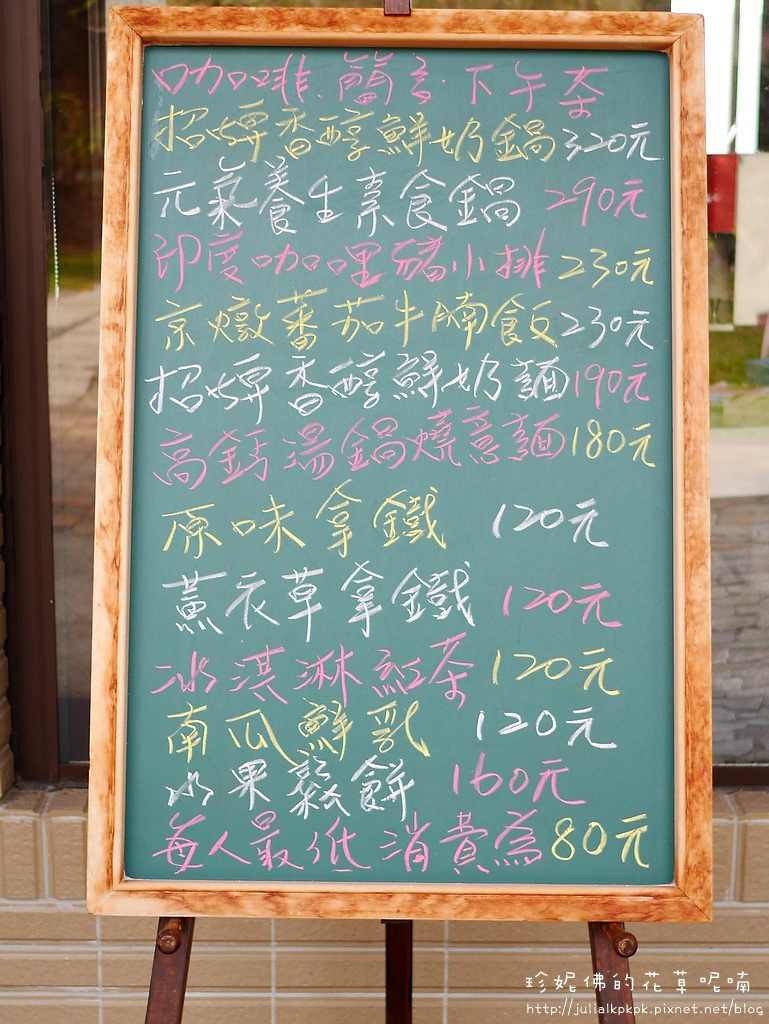 咖啡.簡餐.下午茶
招牌香醇鮮奶鍋320元
元氣養生素食鍋 290元
印度咖哩豬小排230元
京燉蕃茄牛腩飯230元
招牌香醇鮮奶麵190元
高鈣湯鍋燒意麵180元
原味拿鐵 120元
薰衣草拿鐵 120元
冰淇淋紅茶120元
南瓜鮮乳 120元
水果鬆餅 160元
每人最低消費為80元
珍妮佛的花草呢喃
http://julialkpkpk.pixnet.net/blog